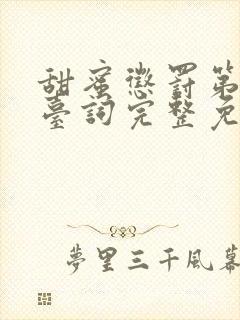 甜蜜懲罰第
臺詞完整免
夢里三千風幕